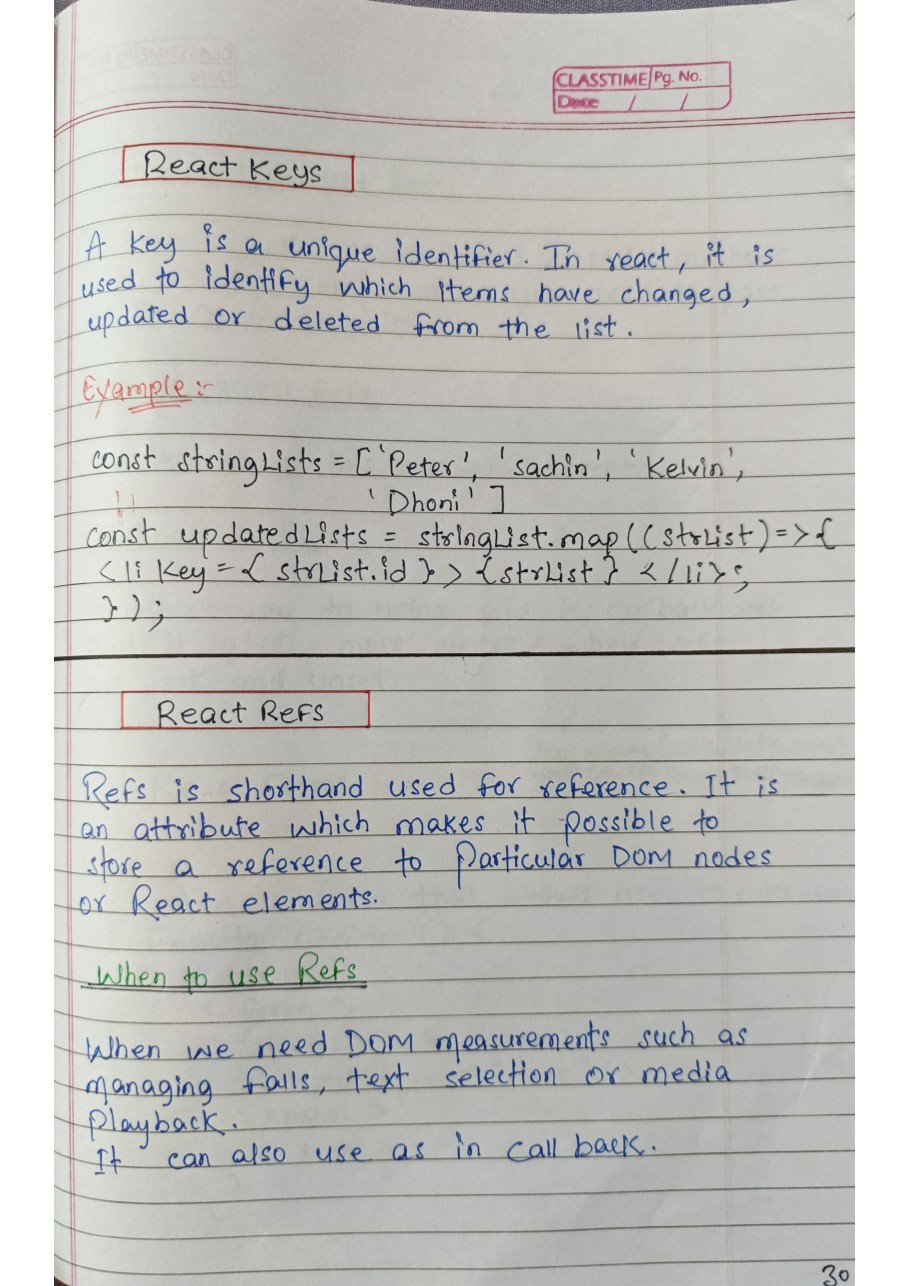 CLASSTIME Pg. No.
Date / /
React Keys
A key is a unique identifier. In react, it is
used to identify which items have changed,
updated or deleted from the list.
Example :-
const stringLists = ['Peter', 'sachin', 'Kelvin',
'Dhoni']
const updatedLists = stringList.map((strList)=>{
<li key={strList.id}>{strList}</li>;
});
React Refs
Refs is shorthand used for reference. It is
an attribute which makes it possible to
store a reference to particular DOM nodes
or React elements.
When to use Refs
When we need DOM measurements such as
managing falls, text selection or media
playback.
It can also use as in call back.
30